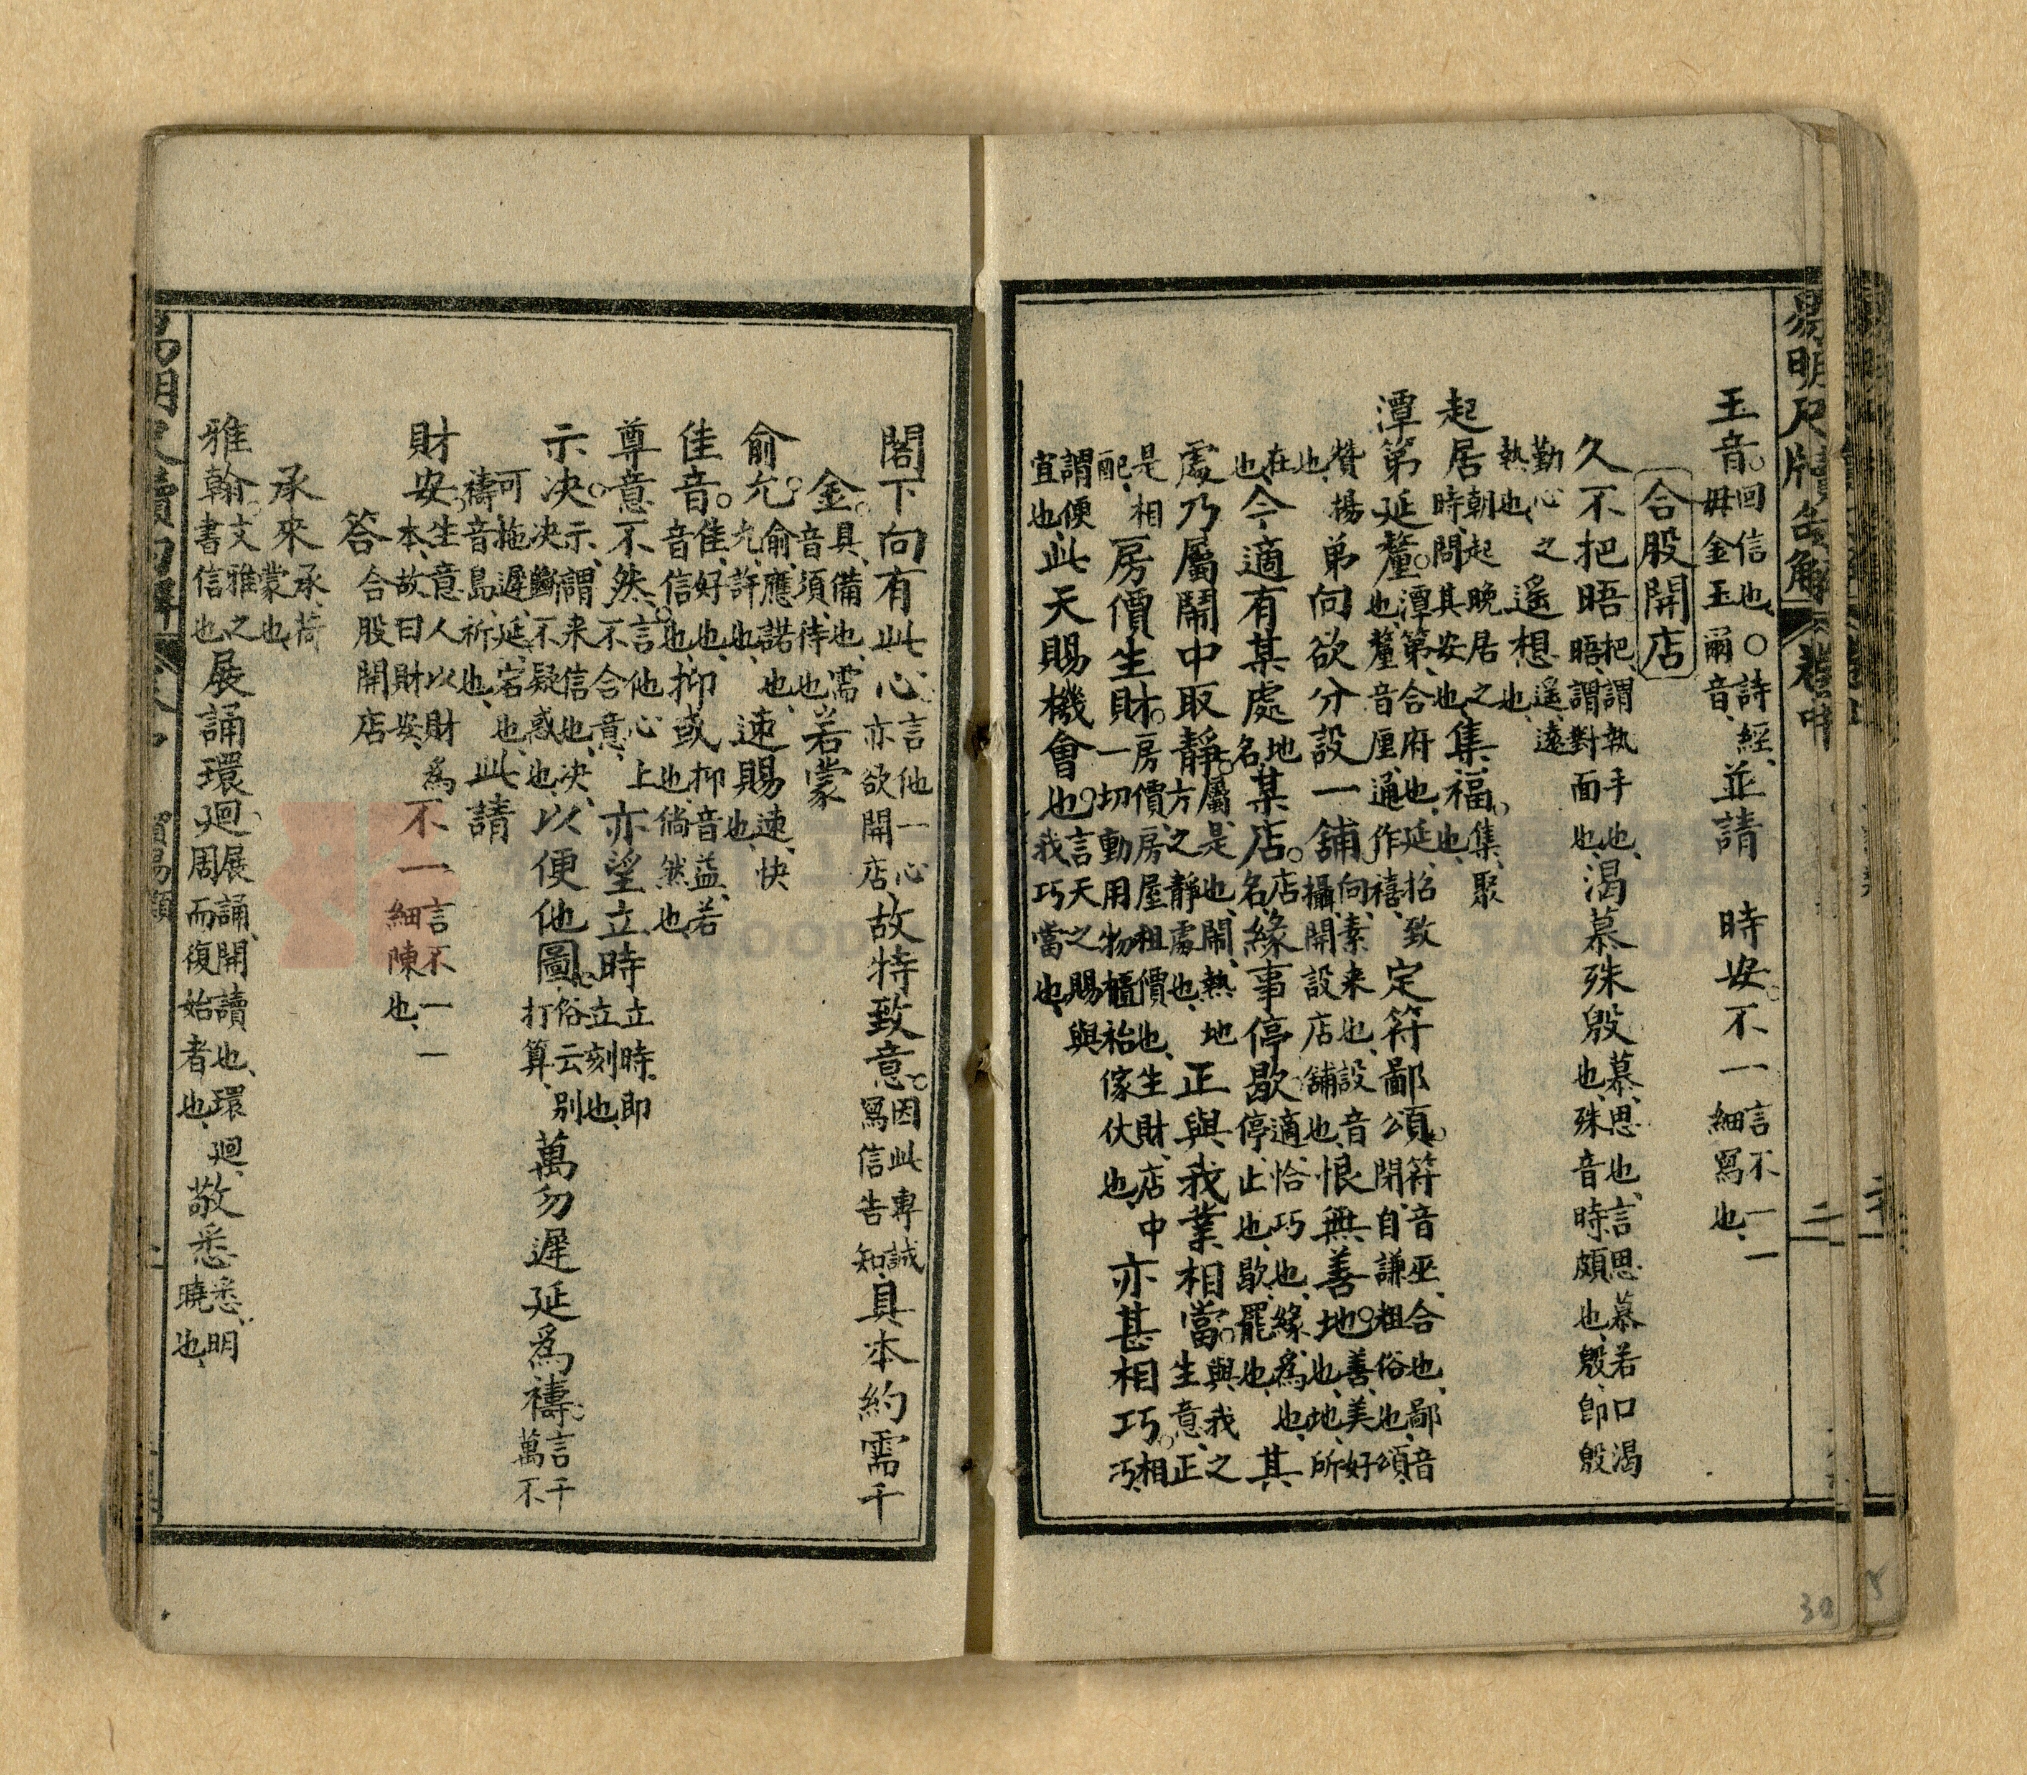 易明尺牘句解 卷中 二
玉音。回信也。○詩經、毋金玉爾音、並請 時安。不一言不一一細寫也、
合股開店
久不把晤把、謂執手也、晤、謂對面也、渴慕殊殷慕、思也、言思慕若口渴也、殊音時、頗也、殷、即殷
勤心之熱也、遥想遥、遠也、
起居朝起晚居之時、問其安也、集福。集、聚也、
潭第延釐。潭第、合府也、延、招致也、釐音厘、通作禧、定符鄙頌。符音巫、合也、鄙音閉、自謙粗俗也、頌音
贊揚也、弟向欲分設一舖向、素来也、設音攝、開設店舖也、恨無善地。善、美好也、地、所
在也、今適有某處地名、某店。店名、緣事停歇適、恰巧也、緣、為也、停、止也、歇、罷也、其
處乃屬鬧中取靜。屬、是也、鬧、熱地方之靜處也、正與我業相當。與我之生意、正
是相配、房價生財。房價、房屋租價也、生財、店中一切動用物櫃枱傢伙也、亦甚相巧。相巧、
謂便宜也、此天賜機會也。言天之賜與我巧當也、
閣下向有此心。言他一心亦欲開店、故特致意。因此專誠寫信告知、具本約需千
金。具、備也、需音須、待也、若蒙
俞允。俞、應諾也、允、許也、速賜速、快也、
佳音。佳、好也、音、信也、抑或抑音益、若也、倘然也、
尊意不然。言他心上不合意、亦望立時立時、即立刻也、
示决。示、謂来信也、决、决斷不疑惑也、以便他圖。俗云别打算、萬勿遲延為禱。言千萬不
可拖遲延宕也、禱音島、祈也、此請
財安。生意人以財為本、故曰財安、不一言不一一細陳也、
答合股開店
承來承、荷蒙也、
雅翰。文雅之書信也、展誦環廻。展誦、開讀也、環廻、周而復始者也、敬悉悉、明曉也、
貿易類